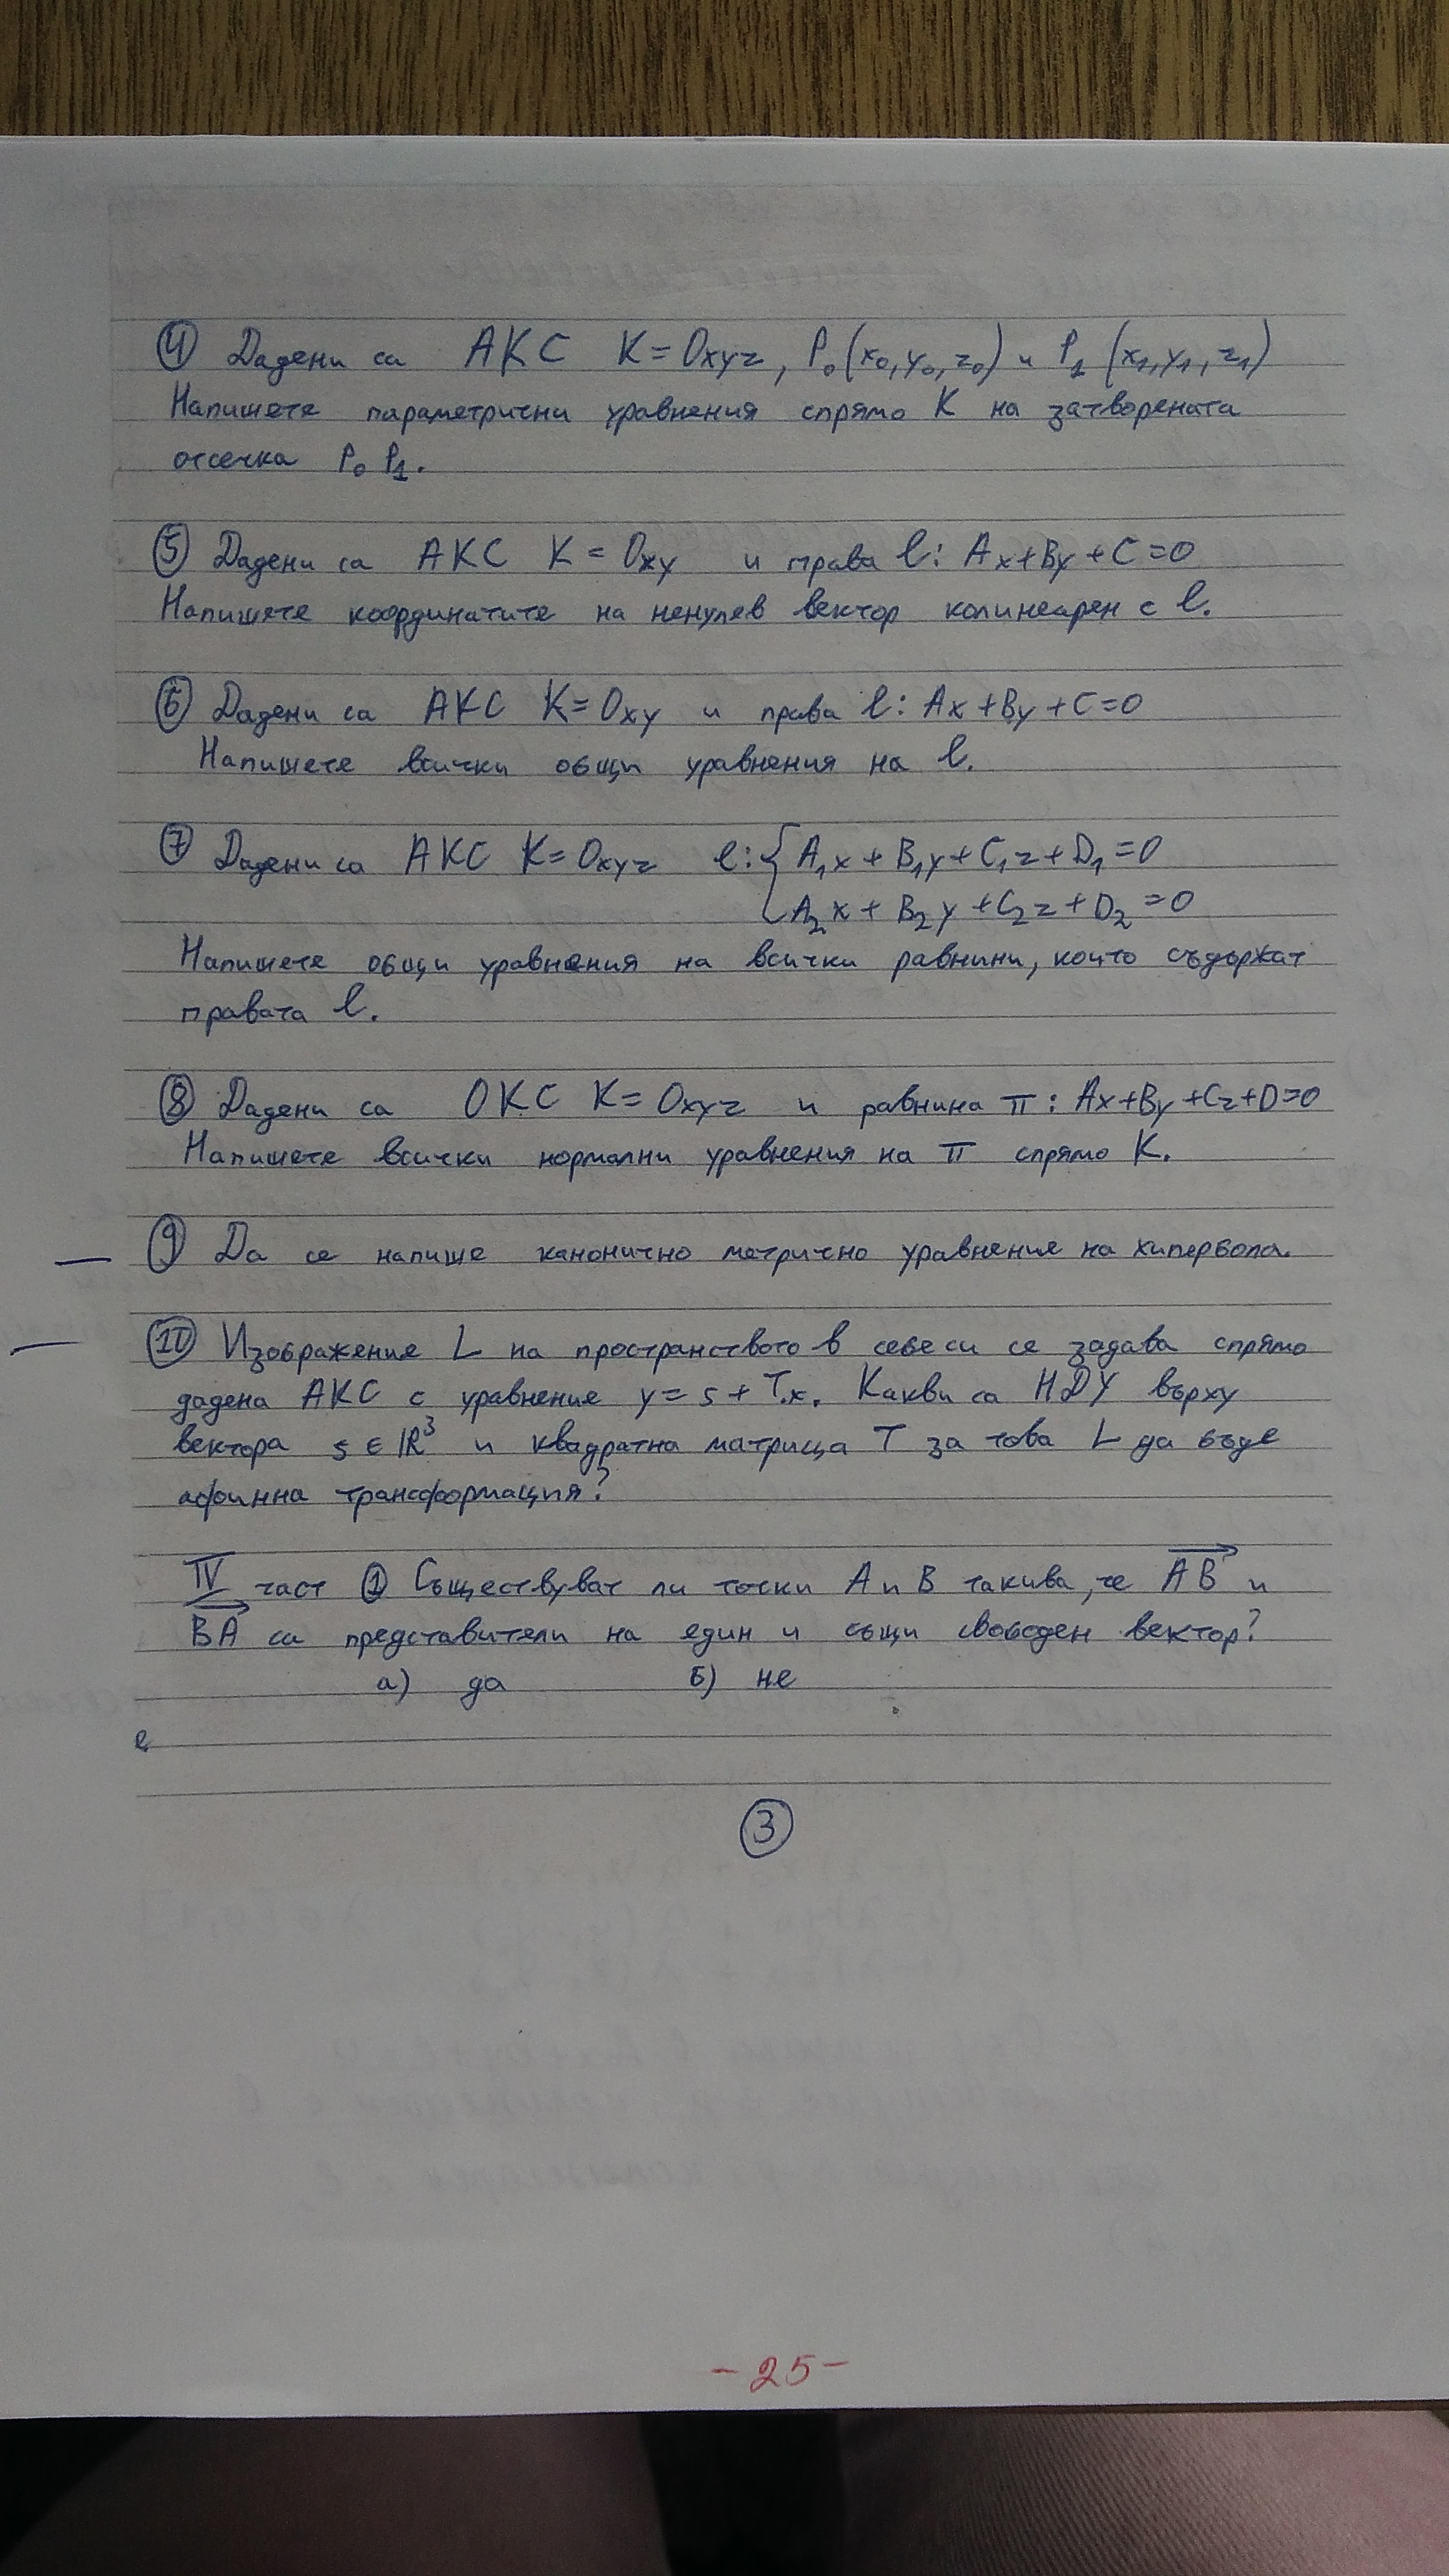 ④ Дадени са АКС K=Oxyz, P₀(x₀,y₀,z₀) и P₁(x₁,y₁,z₁)
Напишете параметрични уравнения спрямо K на затворената
отсечка P₀P₁.
⑤ Дадени са АКС K=Oxy и права l: Ax+By+C=0
Напишете координатите на ненулев вектор колинеарен с l.
⑥ Дадени са АКС K=Oxy и права l: Ax+By+C=0
Напишете всички общи уравнения на l.
⑦ Дадени са АКС K=Oxyz l: { A₁x+B₁y+C₁z+D₁=0
A₂x+B₂y+C₂z+D₂=0
Напишете общи уравнения на всички равнини, които съдържат
правата l.
⑧ Дадени са ОКС K=Oxyz и равнина π: Ax+By+Cz+D=0
Напишете всички нормални уравнения на π спрямо K.
— ⑨ Да се напише канонично метрично уравнение на хипербола.
— ⑩ Изображение L на пространството в себе си се задава спрямо
дадена АКС с уравнение y=s+T.x. Какви са НДУ върху
вектора s∈ℝ³ и квадратна матрица T за това L да бъде
афинна трансформация?
IV част ① Съществуват ли точки A и B такива, че \overrightarrow{AB} и
\overrightarrow{BA} са представители на един и същи свободен вектор?
а) да б) не
е
③
-25-